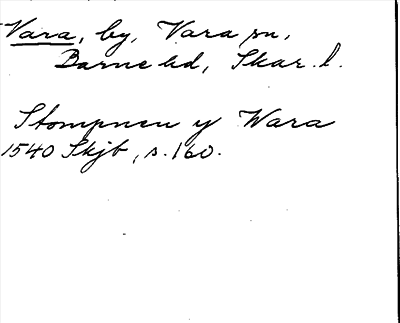 Vara, by, Vara sn,
Barne hd, Skar. l.
Stompnen y Wara
1540 Skjb, s. 160.